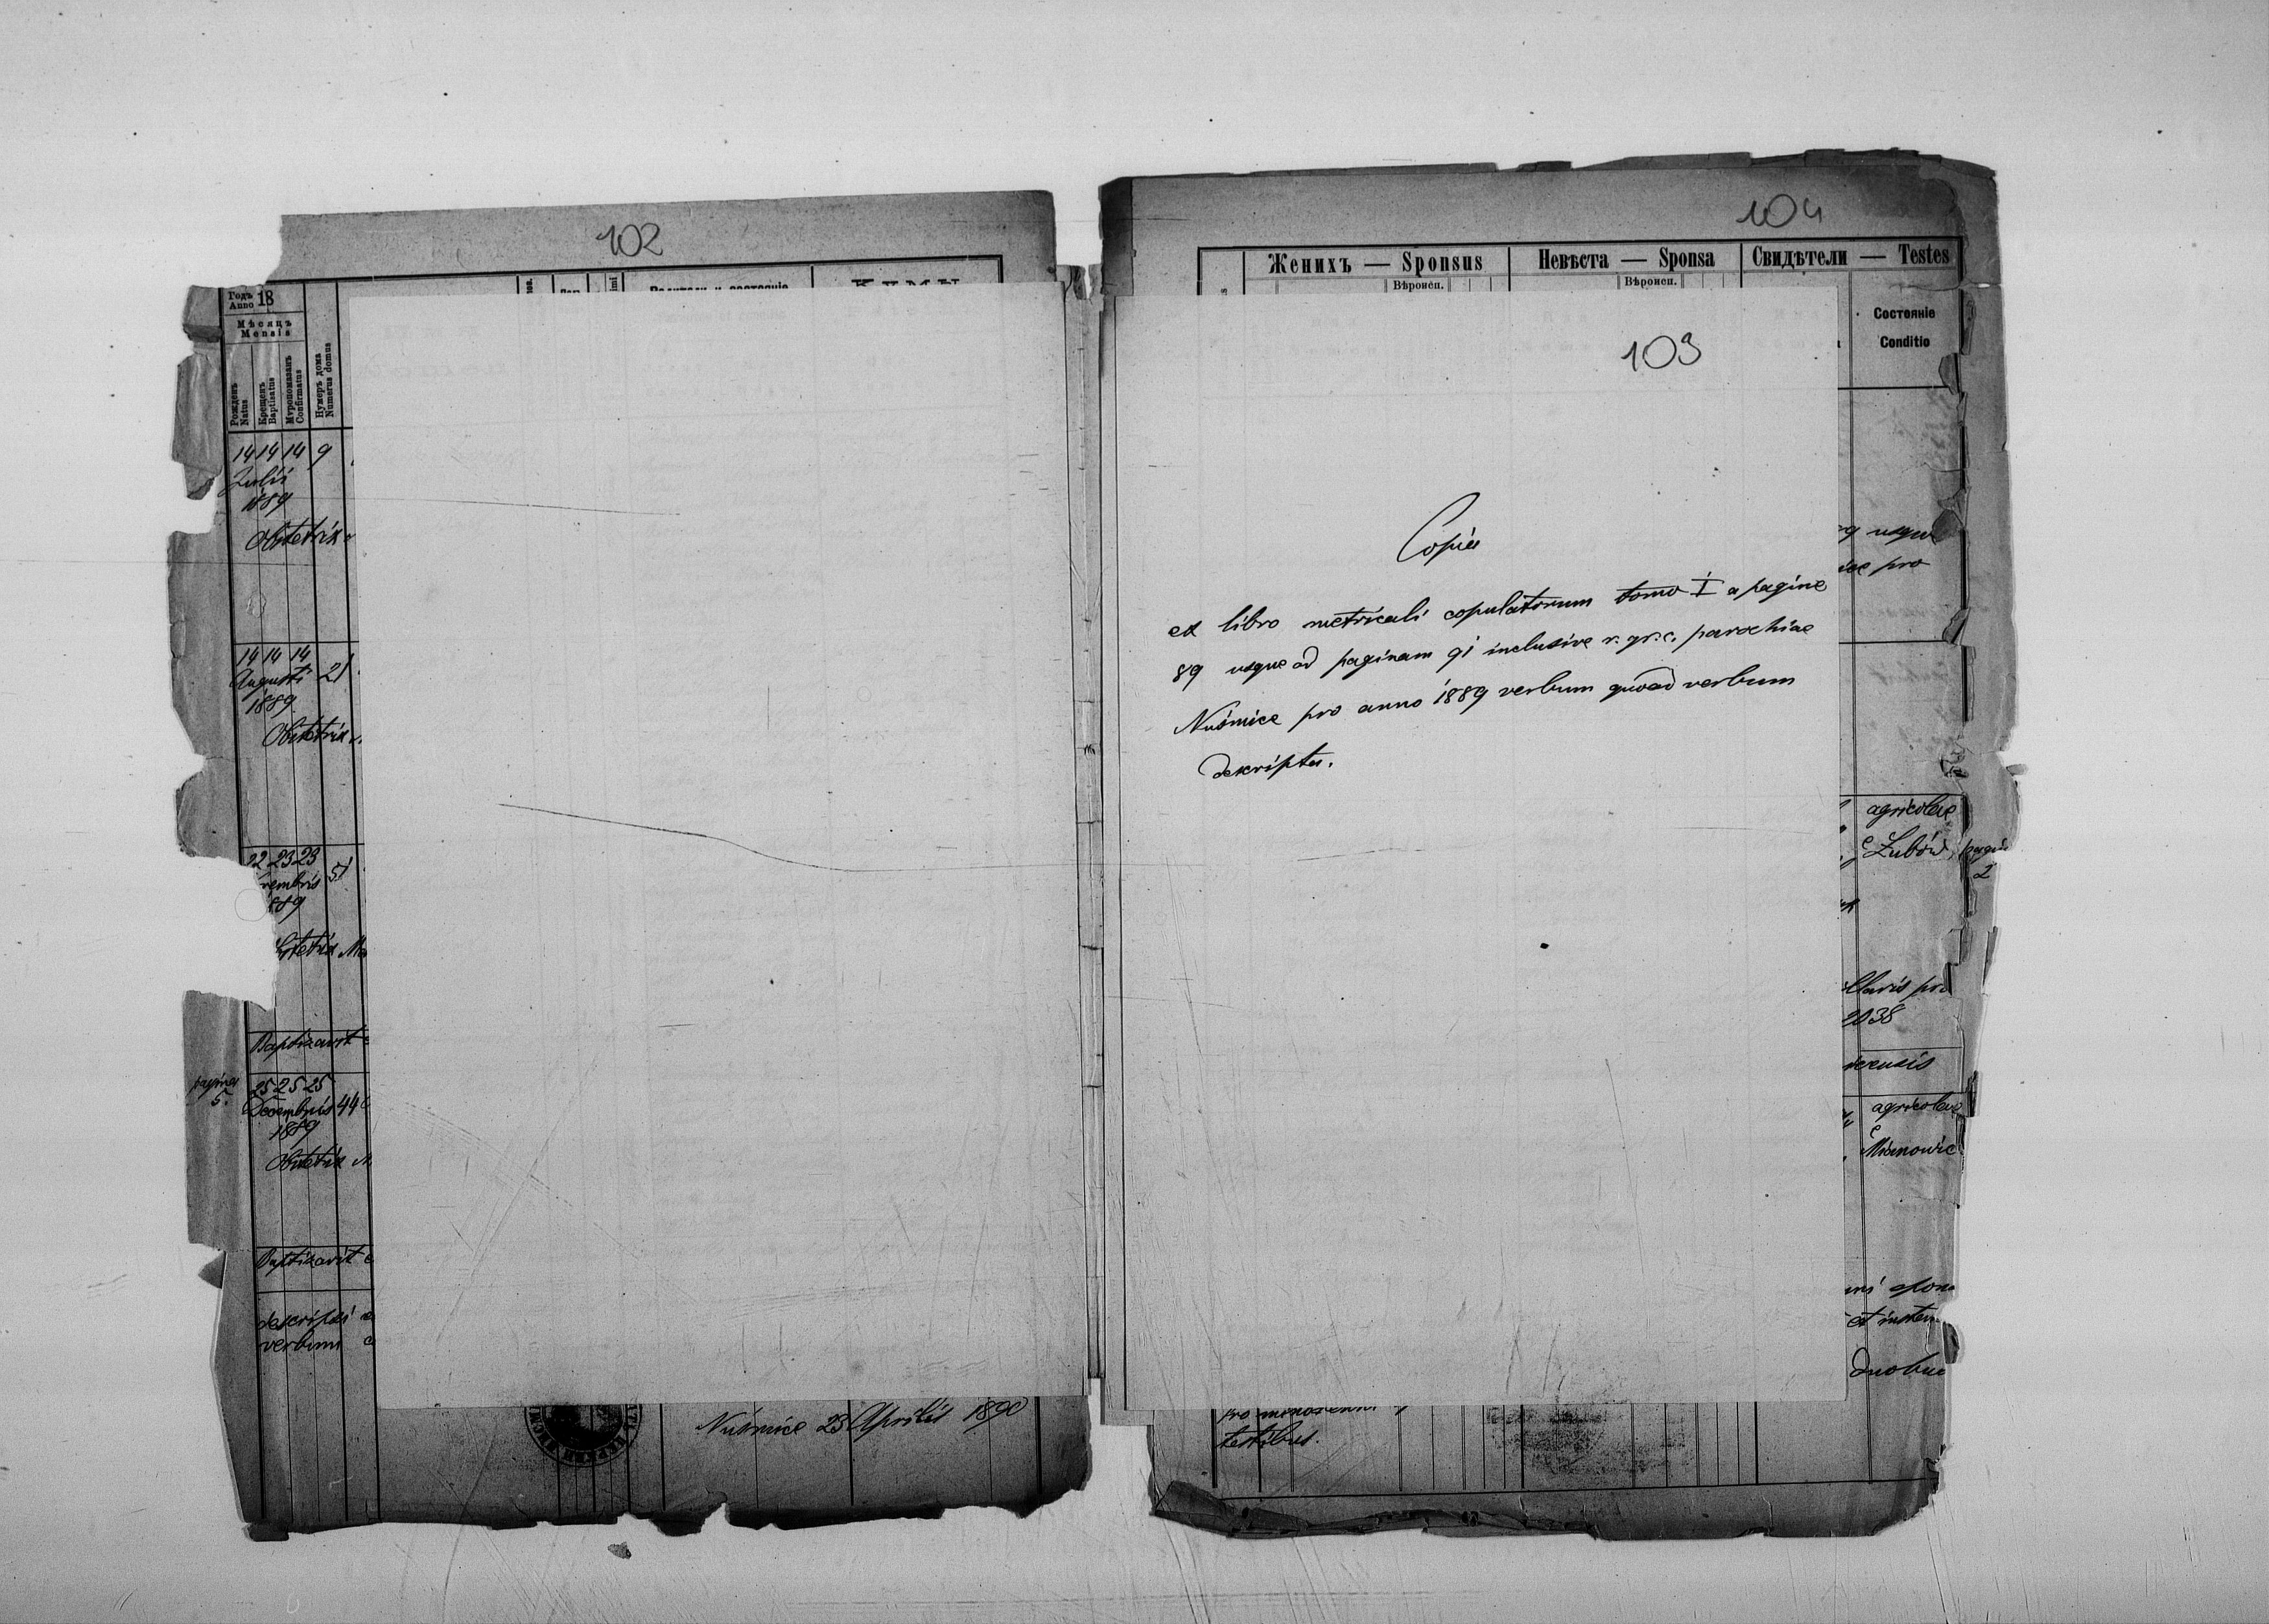 102
Годъ 18
Anno
Мѣсяцъ
Mensis
Рожденъ
Natus
Крещенъ
Baptisatus
Мѵропомазанъ
Confirmatus
Нумеръ дома
Numerus domus
14 14 14 9
Julii
1889
Obstetrix
14 14 14 21
Augusti
1889
Obstetrix
22 23 23 51
vembris
889
stetrix
Baptizavit
pagina
5.
25 25 25 44
Decembris
1889
Obstetrix
Baptizavit
descripsi
verbum
Nuśmice 23 Aprilis 1890
104
Женихъ — Sponsus
Невѣста — Sponsa
Свидѣтели — Testes
Вѣроисп.
Вѣроисп.
Состоянie
Conditio
103
Copia
ex libro metricali copulatorum tomo I a pagina
89 usque ad paginam 91 inclusive r. gr. c. parochiae
Nuśmice pro anno 1889 verbum quoad verbum
descripta.
usque
pro
agricolae
e Żubów, pagina
2
pro
2038
agricolae
e
et
duobus
testibus.